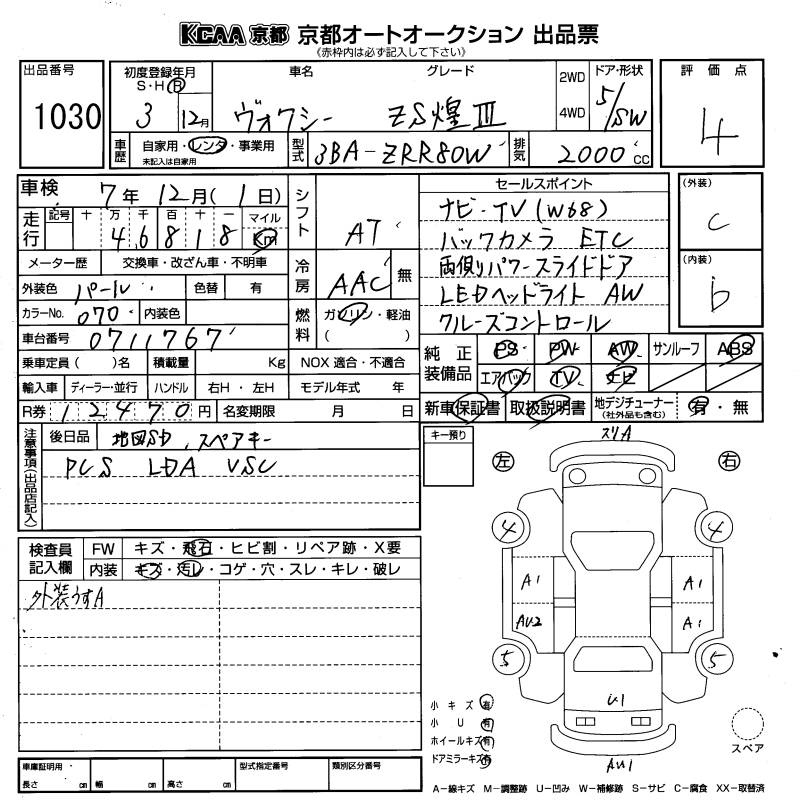 KCAA 京都 京都オートオークション 出品票
(赤枠内は必ず記入して下さい)
出品番号
1030
初度登録年月
S・H・R
3 12月
車名
ヴォクシー
グレード
ZS煌Ⅲ
2WD
4WD
ドア・形状
5/SW
評価点
4
車歴
自家用・レンタ・事業用
未記入は自家用
型式
3BA-ZRR80W
排気
2000 CC
車検
7年12月(1日)
走行
記号 十 万 千 百 十 一 マイル
4 6 8 1 8 Km
メーター歴 交換車・改ざん車・不明車
外装色 パール 色替 有
カラーNo. 070 内装色
車台番号 0711767
シフト
AT
冷房
AAC 無
燃料
ガソリン・軽油
( )
乗車定員( )名 積載量 Kg NOX 適合・不適合
輸入車 ディーラー・並行 ハンドル 右H・左H モデル年式 年
R券 12470円 名変期限 月 日
セールスポイント
ナビ・TV(W68)
バックカメラ ETC
両側パワースライドドア
LEDヘッドライト AW
クルーズコントロール
(外装)
C
(内装)
b
純正装備品
PS PW AW サンルーフ ABS
エアバック TV ナビ
新車保証書 取扱説明書 地デジチューナー(社外品も含む) 有・無
注意事項(出品店記入)
後日品 地図SD、スペアキー
PCS LDA VSC
キー預り
検査員記入欄
FW キズ・飛石・ヒビ割・リペア跡・X要
内装 キズ・汚レ・コゲ・穴・スレ・キレ・破レ
外装うすA
スリA
左
右
4
4
A1
A1
AU2
A1
5
5
U1
AU1
小キズ 有
小U 有
ホイールキズ 有
ドアミラーキズ 有
スペア
車庫証明用 型式指定番号 類別区分番号
長さ cm 幅 cm 高さ cm
A-線キズ M-調整跡 U-凹み W-補修跡 S-サビ C-腐食 XX-取替済